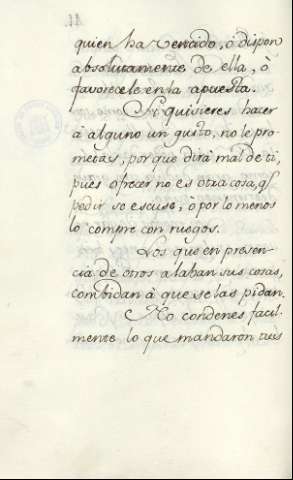 11.
quien ha vencido, ó dispon
absolutamente de ella, ò
favorecele en la apuesta.
Si quisieres hacer
à alguno un gusto, no le pro-
metas, por que dirà mal de ti,
pues ofrecer no es otra cosa, q.e
pedir se escuse, ò por lo menos
lo compre con ruegos.
Los que en presen-
cia de otros alaban sus cosas,
combidan à que se las pidan.
No condenes facil-
mente lo que mandaron tus